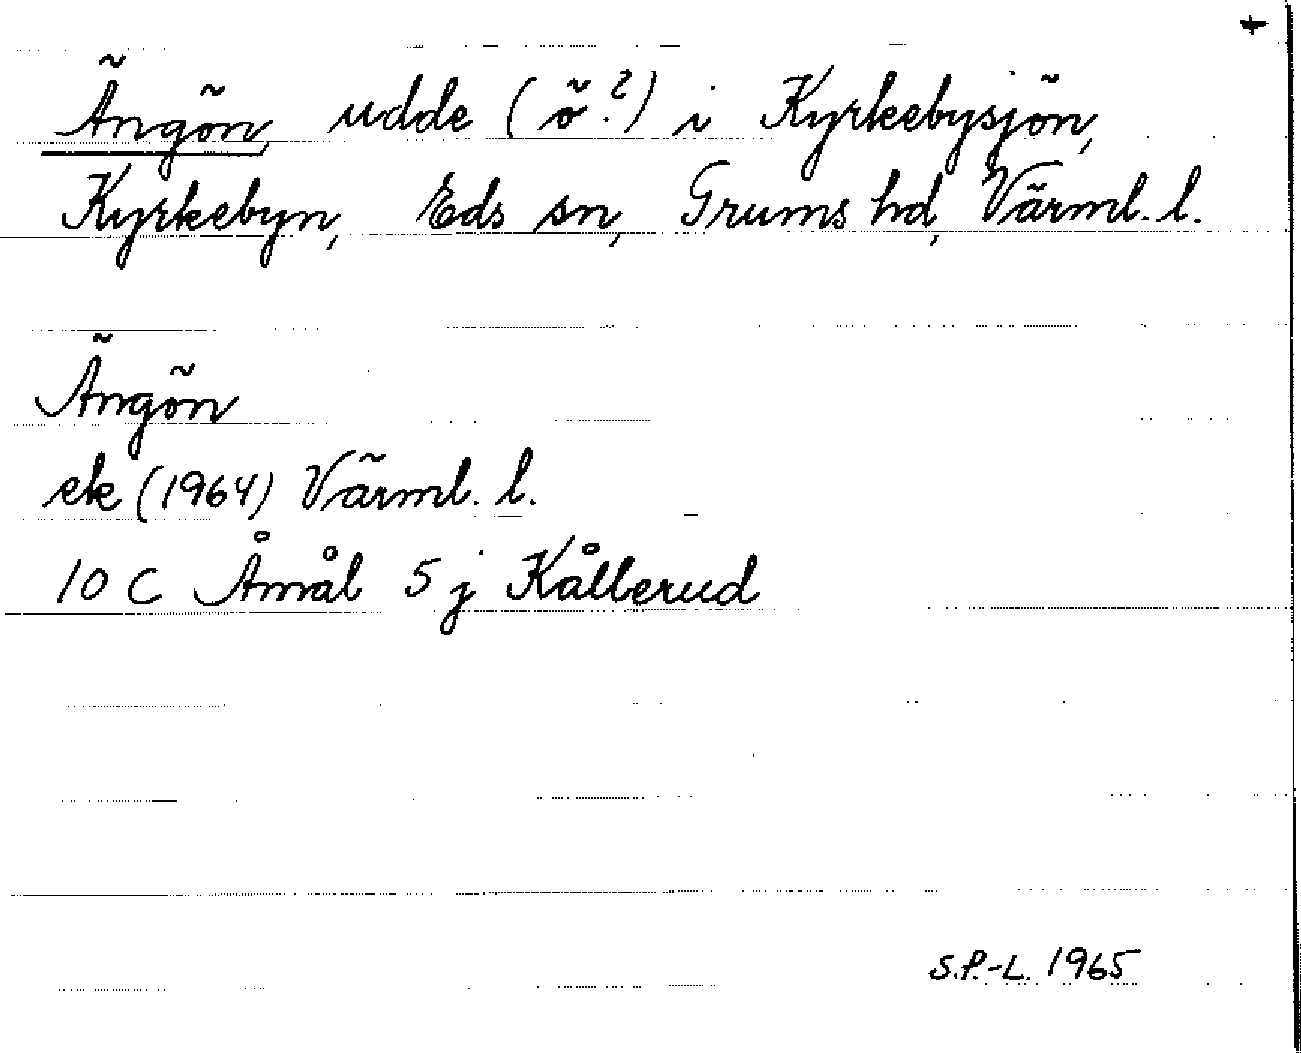 Ängön, udde (ö?) i Kyrkebysjön,
Kyrkebyn, Eds sn, Grums hd, Värml. l.
Ängön
ek (1964) Värml. l.
10 C Åmål 5 j Kållerud
S.P.-L. 1965